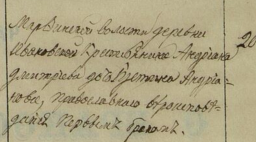 Мардинской волости деревни
Ивановской Крестьянина Андриана
Дмитриева до Андриа-
нова, православнаго вѣроисповѣ-
данiя первымъ бракомъ.
20